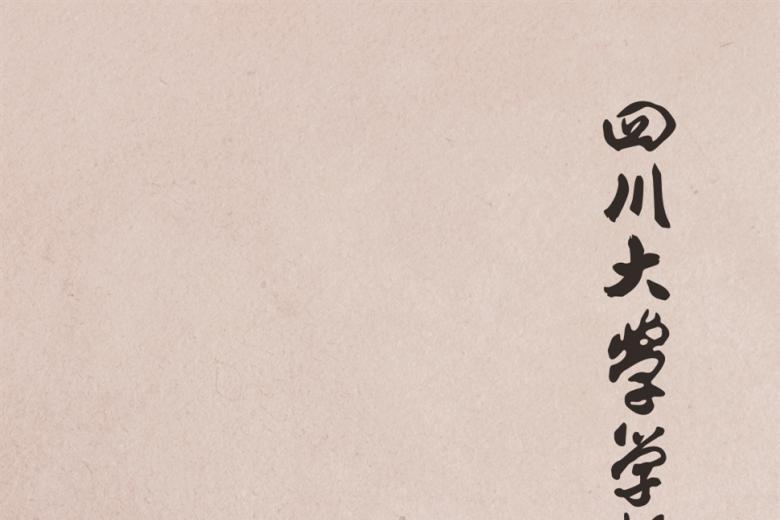 四川大學学